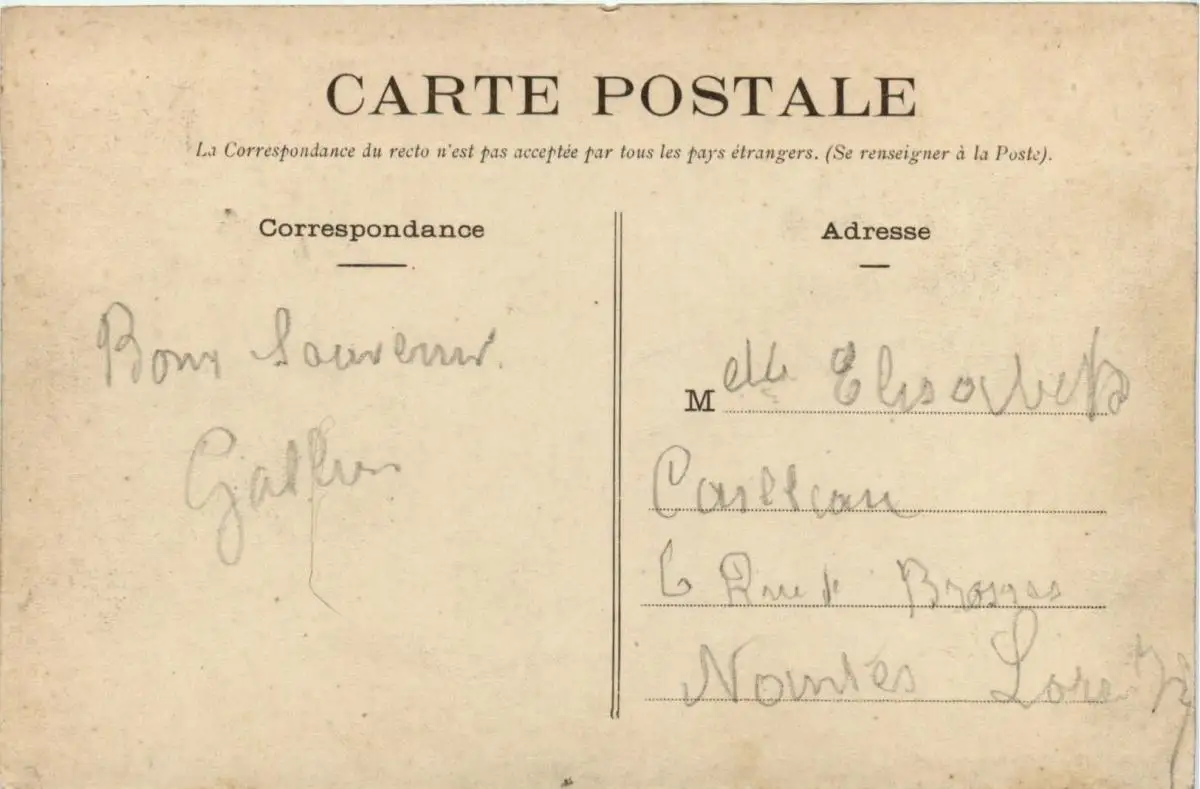 CARTE POSTALE
La Correspondance du recto n'est pas acceptée par tous les pays étrangers. (Se renseigner à la Poste).
Correspondance
Bons Souvenir.
Adresse
Melle Elisabeth
6 Rue de
Nantes